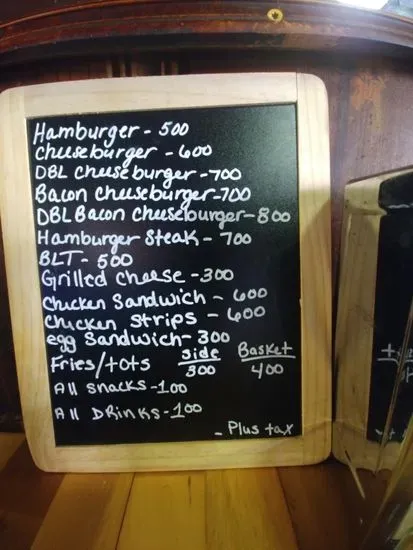 Hamburger - 500
Cheeseburger - 600
DBL Cheeseburger - 700
Bacon Cheeseburger - 700
DBL Bacon Cheeseburger - 800
Hamburger Steak - 700
BLT - 500
Grilled Cheese - 300
Chicken Sandwich - 600
Chicken Strips - 600
egg Sandwich - 300
Fries/tots Side 300 Basket 400
All Snacks - 100
All DRinKS - 100
- Plus tax